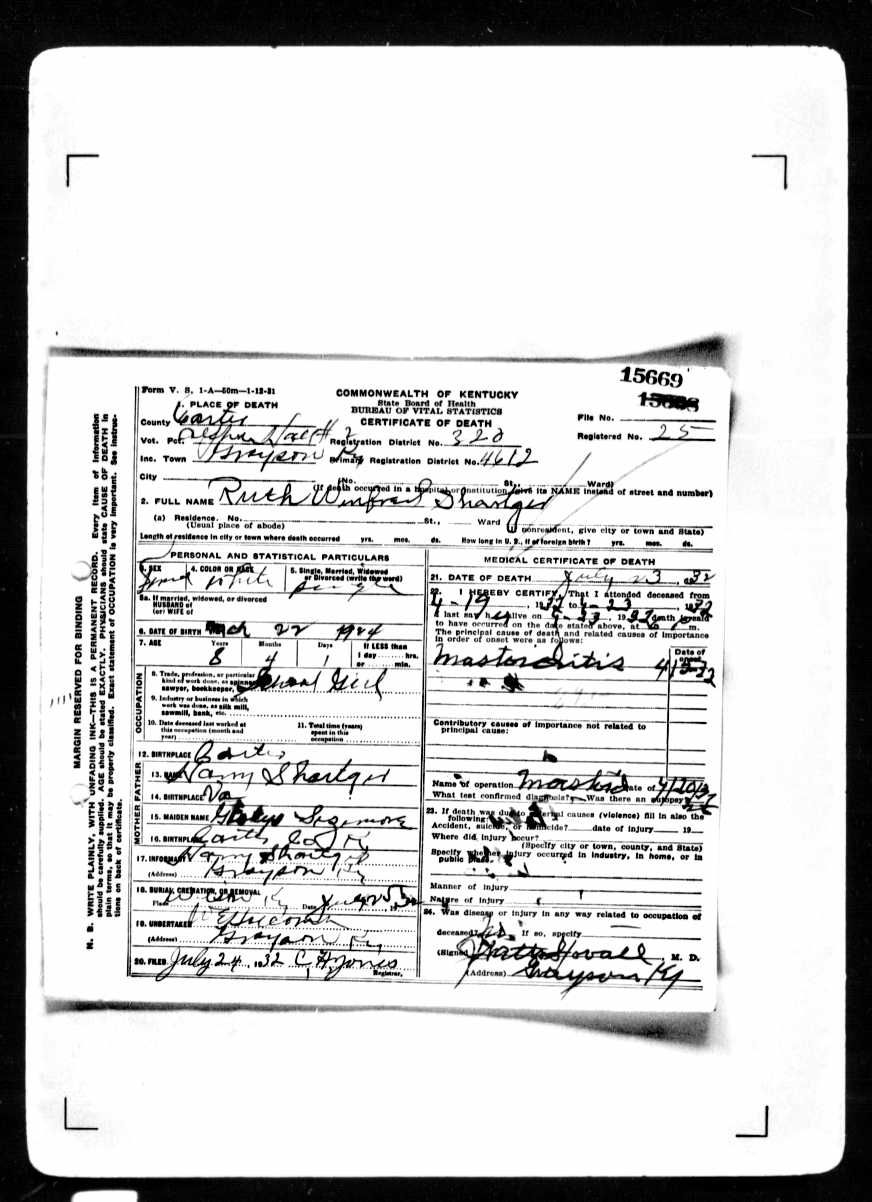 15669
Form V. S. 1-A—50m—1-12-31
COMMONWEALTH OF KENTUCKY
State Board of Health
BUREAU OF VITAL STATISTICS
CERTIFICATE OF DEATH
File No.
Registered No. 25
1. PLACE OF DEATH
County Carter
Vot. Pct. Registration District No. 320
Inc. Town Grayson Ky Primary Registration District No. 4612
City (No. St., Ward)
(If death occurred in a hospital or institution, give its NAME instead of street and number)
2. FULL NAME Ruth Winfred Shartzer
(a) Residence. No. St., Ward
(Usual place of abode) (If nonresident, give city or town and State)
Length of residence in city or town where death occurred yrs. mos. ds. How long in U. S., if of foreign birth? yrs. mos. ds.
PERSONAL AND STATISTICAL PARTICULARS
3. SEX 4. COLOR OR RACE 5. Single, Married, Widowed
or Divorced (write the word)
White Single
5a. If married, widowed, or divorced
HUSBAND of
(or) WIFE of
6. DATE OF BIRTH Mch 22 1924
7. AGE Years Months Days If LESS than
1 day hrs.
or min.
8 4 1
OCCUPATION
8. Trade, profession, or particular
kind of work done, as spinner,
sawyer, bookkeeper, School Girl
9. Industry or business in which
work was done, as silk mill,
sawmill, bank, etc.
10. Date deceased last worked at
this occupation (month and
year)
11. Total time (years)
spent in this
occupation
12. BIRTHPLACE Carter
FATHER
13. NAME Harry Shartzer
14. BIRTHPLACE Va
MOTHER
15. MAIDEN NAME Gladys Sizemore
16. BIRTHPLACE Carter Co Ky
17. INFORMANT Harry Shartzer
(Address) Grayson Ky
18. BURIAL, CREMATION, OR REMOVAL
Place Ky Date
19. UNDERTAKER
(Address) Grayson Ky
20. FILED July 24, 1932 C H Jones
Registrar.
MEDICAL CERTIFICATE OF DEATH
21. DATE OF DEATH July 23, 1932
22. I HEREBY CERTIFY, That I attended deceased from
19, 1932 to 23, 1932
I last saw h alive on 23, 1932 death is said
to have occurred on the date stated above, at m.
The principal cause of death and related causes of importance
in order of onset were as follows:
Date of
onset
Mastoiditis
Contributory causes of importance not related to
principal cause:
Name of operation Mastoid Date of
What test confirmed diagnosis? Was there an autopsy?
23. If death was due to external causes (violence) fill in also the
following:
Accident, suicide, or homicide? date of injury 19
Where did injury occur?
(Specify city or town, county, and State)
Specify whether injury occurred in industry, in home, or in
public place.
Manner of injury
Nature of injury
24. Was disease or injury in any way related to occupation of
deceased? No. If so, specify
(Signed) Stovall, M. D.
(Address) Grayson Ky
MARGIN RESERVED FOR BINDING
N. B. WRITE PLAINLY, WITH UNFADING INK—THIS IS A PERMANENT RECORD. Every item of information
should be carefully supplied. AGE should be stated EXACTLY. PHYSICIANS should state CAUSE OF DEATH in
plain terms, so that it may be properly classified. Exact statement of OCCUPATION is very important. See instruc-
tions on back of certificate.